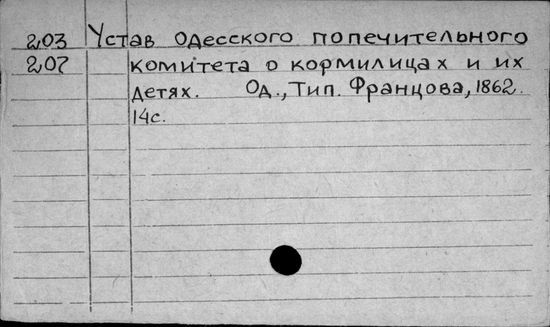 203 Устав одесского попечительного
207 комитета о кормилицах и их
детях. Од., Тип. Францова, 1862.
14с.